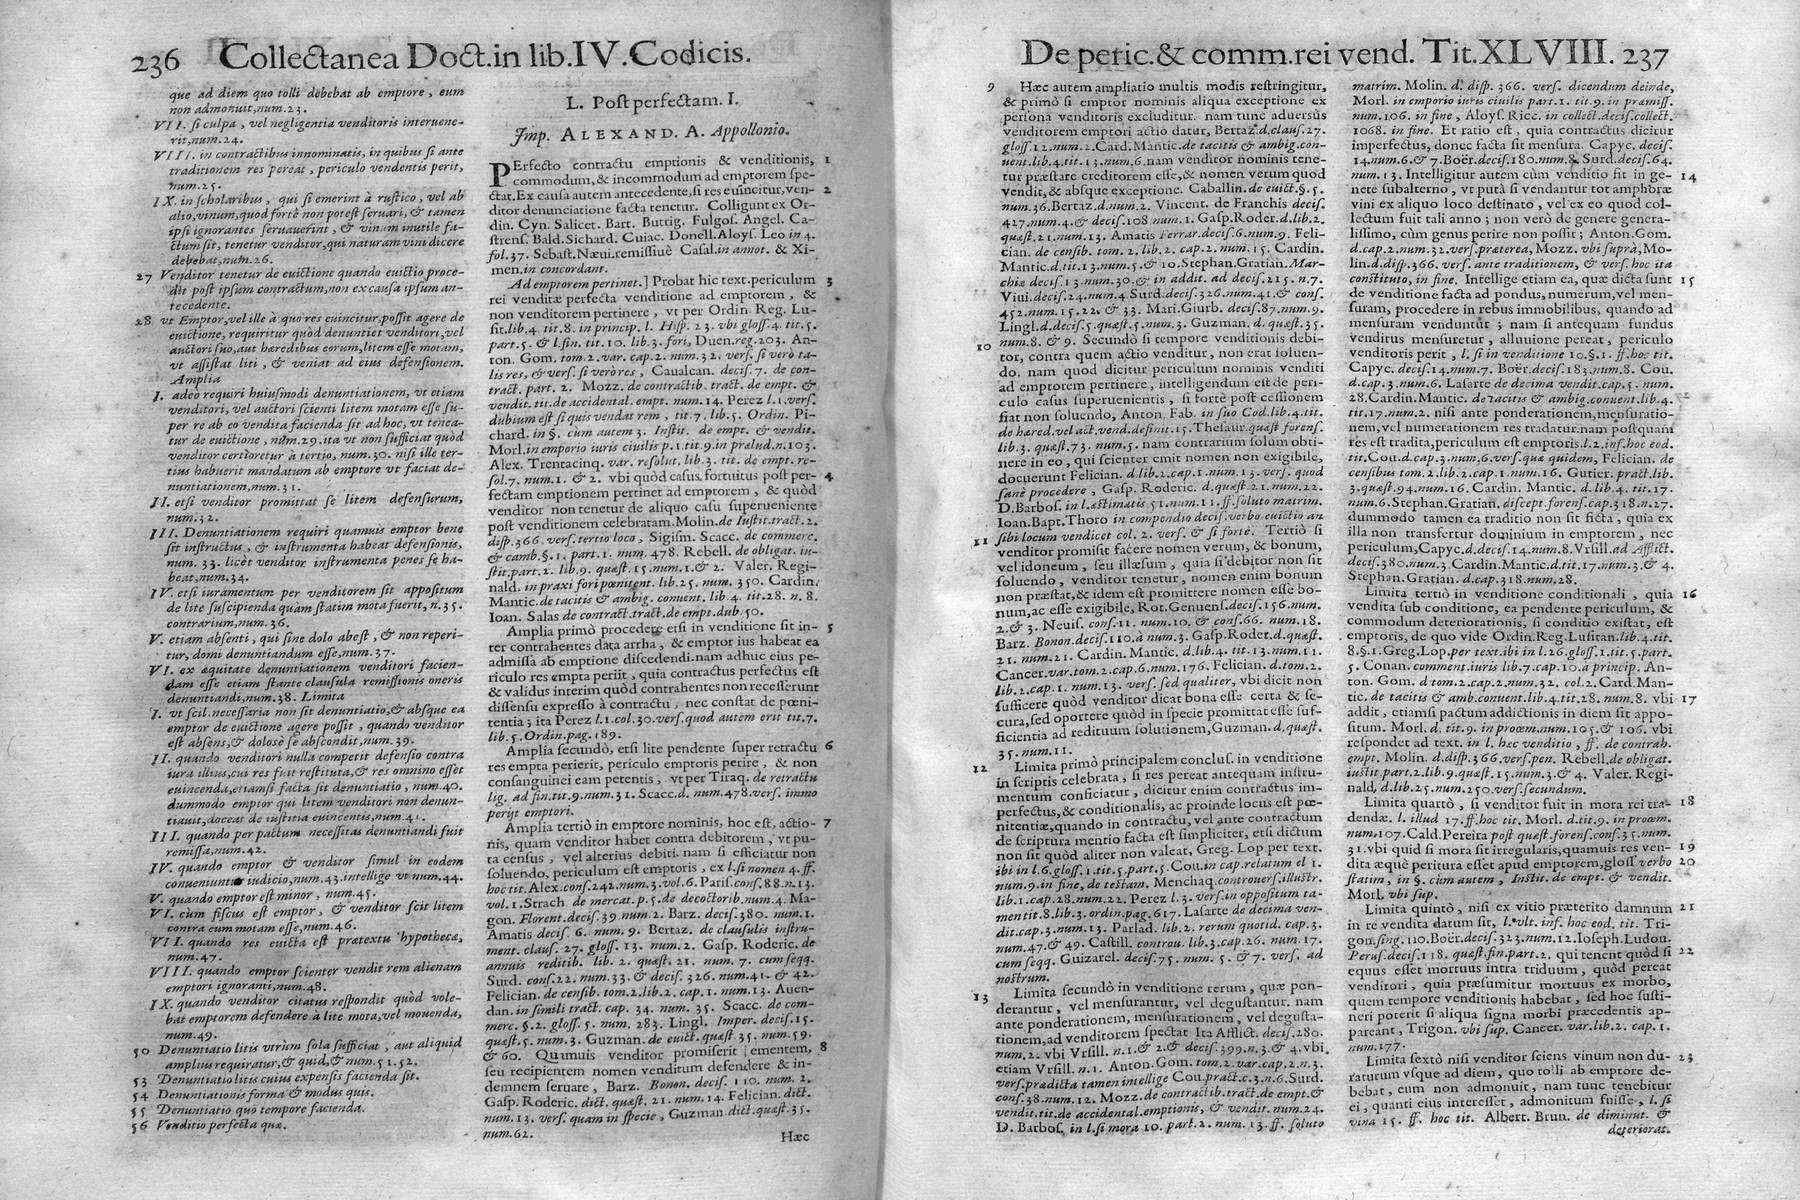 236 Collectanea Doct. in lib. IV. Codicis.
que ad diem quo tolli debebat ab emptore, eum
non admonuit, num. 23.
VII. si culpa, vel negligentia venditoris interuene-
rit, num. 24.
VIII. in contractibus innominatis, in quibus si ante
traditionem res pereat, periculo vendentis perit,
num. 25.
IX. in scholaribus, qui si emerint à rustico, vel ab
alio, vinum, quod fortè non potest seruari, & tamen
ipsi ignorantes seruauerint, & vinum inutile fa-
ctum sit, tenetur venditor, qui naturam vini dicere
debebat, num. 26.
27 Venditor tenetur de euictione quando euictio proce-
dit post ipsum contractum, non ex causa ipsum an-
tecedente.
28 vt Emptor, vel ille à quo res euincitur, possit agere de
euictione, requiritur quòd denuntiet venditori, vel
auctori suo, aut hæredibus eorum, litem esse motam,
vt assistat liti, & veniat ad eius defensionem.
Amplia
I. adeò requiri huiusmodi denuntiationem, vt etiam
venditori, vel auctori scienti litem motam esse su-
per re ab eo vendita facienda sit ad hoc, vt tenea-
tur de euictione, num. 29. ita vt non sufficiat quòd
venditor certioretur à tertio, num. 30. nisi ille ter-
tius habuerit mandatum ab emptore vt faciat de-
nuntiationem, num. 31.
II. etsi venditor promittat se litem defensurum,
num. 32.
III. Denuntiationem requiri quamuis emptor bene
sit instructus, & instrumenta habeat defensionis,
num. 33. licèt venditor instrumenta penes se ha-
beat, num. 34.
IV. etsi iuramentum per venditorem sit appositum
de lite suscipienda quàm statim mota fuerit, n. 35.
contrarium, num. 36.
V. etiam absenti, qui sine dolo abest, & non reperi-
tur, domi denuntiandum esse, num. 37.
VI. ex æquitate denuntiationem venditori facien-
dam esse etiam stante clausula remissionis oneris
denuntiandi, num. 38. Limita
I. vt scil. necessaria non sit denuntiatio, & absque ea
emptor de euictione agere possit, quando venditor
est absens, & dolosè se abscondit, num. 39.
II. quando venditori nulla competit defensio contra
iura illius, cui res fuit restituta, & res omnino esset
euincenda, etiamsi facta sit denuntiatio, num. 40.
dummodo emptor qui litem venditori non denun-
tiauit, doceas de iustitia euincentis, num. 41.
III. quando per pactum necessitas denuntiandi fuit
remissa, num. 42.
IV. quando emptor & venditor simul in eodem
conueniuntur iudicio, num. 43. intellige vt num. 44.
V. quando emptor est minor, num. 45.
VI. cùm fiscus est emptor, & venditor scit litem
contra eum motam esse, num. 46.
VII. quando res euicta est prætextu hypothecæ,
num. 47.
VIII. quando emptor scienter vendit rem alienam
emptori ignoranti, num. 48.
IX. quando venditor citatus respondit quòd vole-
bat emptorem defendere à lite mota, vel mouenda,
num. 49.
50 Denuntiatio litis vtrùm sola sufficiat, aut aliquid
ampliùs requiratur, & quid, & num. 51. 52.
53 Denuntiatio litis cuius expensis facienda sit.
54 Denuntiationis forma & modus quis.
55 Denuntiatio quo tempore facienda.
56 Venditio perfecta quæ.
L. Post perfectam. I.
Imp. ALEXAND. A. Appollonio.
PErfecto contractu emptionis & venditionis, 1
commodum, & incommodum ad emptorem spe-
ctat. Ex causa autem antecedente, si res euincitur, ven- 2
ditor denunciatione facta tenetur. Colligunt ex Or-
din. Cyn. Salicet. Bart. Buttrig. Fulgos. Angel. Ca-
strens. Bald. Sichard. Cuiac. Donell. Aloys. Leo in 4.
fol. 37. Sebast. Næui. remissiuè Casal. in annot. & Xi-
men. in concordant.
Ad emptorem pertinet.] Probat hic text. periculum 3
rei venditæ perfecta venditione ad emptorem, &
non venditorem pertinere, vt per Ordin. Reg. Lu-
sit. lib. 4. tit. 8. in princip. l. Hisp. 23. vbi gloss. 4. tit. 5.
part. 5. & l. fin. tit. 10. lib. 3. fori, Duen. reg. 203. An-
ton. Gom. tom. 2. var. cap. 2. num. 32. vers. si verò ta-
lis res, & vers. si verò res, Caualcan. decis. 7. de con-
tract. part. 2. Mozz. de contractib. tract. de empt. &
vendit. tit. de accidental. empt. num. 14. Perez l. 1. vers.
dubium est si quis vendat rem, tit. 7. lib. 5. Ordin. Pi-
chard. in §. cùm autem 3. Instit. de empt. & vendit.
Morl. in emporio iuris ciuilis p. 1. tit. 9. in prælud. n. 103.
Alex. Trentacinq. var. resolut. lib. 3. tit. de empt. re-
sol. 7. num. 1. & 2. vbi quòd casus fortuitus post per- 4
fectam emptionem pertinet ad emptorem, & quòd
venditor non tenetur de aliquo casu superueniente
post venditionem celebratam. Molin. de Iustit. tract. 2.
disp. 366. vers. tertio loco, Sigism. Scacc. de commerc.
& camb. §. 1. part. 1. num. 478. Rebell. de obligat. iu-
stit. part. 2. lib. 9. quæst. 15. num. 1. & 2. Valer. Regi-
nald. in praxi fori pœnitent. lib. 25. num. 350. Cardin.
Mantic. de tacitis & ambig. conuent. lib. 4. tit. 28. n. 8.
Ioan. Salas de contract. tract. de empt. dub. 50.
Amplia primò procedere etsi in venditione sit in- 5
ter contrahentes data arrha, & emptor ius habeat ea
admissa ab emptione discedendi. nam adhuc eius pe-
riculo res empta periit, quia contractus perfectus est
& validus interim quòd contrahentes non recesserunt
dissensu expresso à contractu, nec constat de pœni-
tentia; ita Perez l. 1. col. 30. vers. quod autem erit tit. 7.
lib. 5. Ordin. pag. 189.
Amplia secundò, etsi lite pendente super retractu 6
res empta perierit, periculo emptoris perire, & non
consanguinei eam petentis, vt per Tiraq. de retractu
lig. ad fin. tit. 9. num. 31. Scacc. d. num. 478. vers. immo
perijt emptori.
Amplia tertiò in emptore nominis, hoc est, actio- 7
nis, quam venditor habet contra debitorem, vt pu-
ta census, vel alterius debiti. nam si efficiatur non
soluendo, periculum est emptoris, ex l. si nomen 4. ff.
hoc tit. Alex. cons. 242. num. 3. vol. 6. Paris. cons. 88. n. 13.
vol. 1. Strach. de mercat. p. 5. de decoctorib. num. 4. Ma-
gon. Florent. decis. 39. num. 2. Barz. decis. 380. num. 1.
Amatis decis. 6. num. 9. Bertaz. de clausulis instru-
ment. claus. 27. gloss. 13. num. 2. Gasp. Roderic. de
annuis reditib. lib. 2. quæst. 21. num. 7. cum seqq.
Surd. cons. 22. num. 33. & decis. 326. num. 41. & 42.
Felician. de censib. tom. 2. lib. 2. cap. 1. num. 13. Auen-
dan. in simili tract. cap. 34. num. 35. Scacc. de com-
merc. §. 2. gloss. 5. num. 283. Lingl. Imper. decis. 15.
quæst. 5. num. 3. Guzman. de euict. quæst. 35. num. 59.
& 60. Quamuis venditor promiserit ementem, 8
seu recipientem nomen venditum defendere & in-
demnem seruare, Barz. Bonon. decis. 110. num. 2.
Gasp. Roderic. dict. quæst. 21. num. 14. Felician. dict.
num. 13. vers. quam in specie, Guzman dict. quæst. 35.
num. 62.
Hæc
De peric. & comm. rei vend. Tit. XLVIII. 237
9 Hæc autem ampliatio multis modis restringitur,
& primò si emptor nominis aliqua exceptione ex
persona venditoris excluditur. nam tunc aduersus
venditorem emptori actio datur, Bertaz. d. claus. 27.
gloss. 12. num. 2. Card. Mantic. de tacitis & ambig. con-
uent. lib. 4. tit. 13. num. 6. nam venditor nominis tene-
tur præstare creditorem esse, & nomen verum quod
vendit, & absque exceptione. Caballin. de euict. §. 5.
num. 36. Bertaz. d. num. 2. Vincent. de Franchis decis.
427. num. 4. & decis. 108. num. 1. Gasp. Roder. d. lib. 2.
quæst. 21. num. 13. Amatis Ferrar. decis. 6. num. 9. Feli-
cian. de censib. tom. 2. lib. 2. cap. 2. num. 15. Cardin.
Mantic. d. tit. 13. num. 5. & 10. Stephan. Gratian. Mar-
chiæ decis. 13. num. 30. & in addit. ad decis. 215. n. 7.
Viui. decis. 24. num. 4. Surd. decis. 326. num. 41. & cons.
452. num. 15. 22. & 33. Mari. Giurb. decis. 87. num. 9.
Lingl. d. decis. 5. quæst. 5. num. 3. Guzman. d. quæst. 35.
num. 8. & 9. Secundò si tempore venditionis debi-
10 tor, contra quem actio venditur, non erat soluen-
do. nam quod dicitur periculum nominis venditi
ad emptorem pertinere, intelligendum est de peri-
culo casus superuenientis, si fortè post cessionem
fiat non soluendo, Anton. Fab. in suo Cod. lib. 4. tit.
de hæred. vel act. vend. definit. 15. Thesaur. quæst. forens.
lib. 3. quæst. 73. num. 5. nam contrarium solum obti-
nere in eo, qui scienter emit nomen non exigibile,
docuerunt Felician. d. lib. 2. cap. 1. num. 13. vers. quod
sanè procedere, Gasp. Roderic. d. quæst. 21. num. 22.
D. Barbos. in l. æstimatis 51. num. 11. ff. soluto matrim.
Ioan. Bapt. Thoro in compendio decis. verbo euictio an
11 sibi locum vendicet col. 2. vers. & si fortè. Tertiò si
venditor promisit facere nomen verum, & bonum,
vel idoneum, seu illæsum, quia si debitor non sit
soluendo, venditor tenetur, nomen enim bonum
non præstat, & idem est promittere nomen esse bo-
num, ac esse exigibile, Rot. Genuens. decis. 156. num.
2. & 3. Neuis. cons. 11. num. 10. & cons. 66. num. 18.
Barz. Bonon. decis. 110. à num. 3. Gasp. Roder. d. quæst.
21. num. 21. Cardin. Mantic. d. lib. 4. tit. 13. num. 11.
Cancer. var. tom. 2. cap. 6. num. 176. Felician. d. tom. 2.
lib. 2. cap. 1. num. 13. vers. sed qualiter, vbi dicit non
sufficere quòd venditor dicat bona esse certa & se-
cura, sed oportere quòd in specie promittat esse suf-
ficientia ad redituum solutionem, Guzman. d. quæst.
35. num. 11.
12 Limita primò principalem conclus. in venditione
in scriptis celebrata, si res pereat antequam instru-
mentum conficiatur, dicitur enim contractus im-
perfectus, & conditionalis, ac proinde locus est pœ-
nitentiæ, quando in contractu, vel ante contractum
de scriptura mentio facta est simpliciter, etsi dictum
non sit quòd aliter non valeat, Greg. Lop. per text.
ibi in l. 6. gloss. 1. tit. 5. part. 5. Cou. in cap. relatum el 1.
num. 9. in fine, de testam. Menchaq. controuers. illustr.
lib. 1. cap. 28. num. 22. Perez l. 3. vers. in oppositum ta-
men tit. 8. lib. 3. ordin. pag. 617. Lasarte de decima ven-
dit. cap. 3. num. 13. Parlad. lib. 2. rerum quotid. cap. 3.
num. 47. & 49. Castill. controu. lib. 3. cap. 26. num. 17.
cum seqq. Guizarel. decis. 75. num. 5. & 7. vers. ad
nostrum.
13 Limita secundò in venditione rerum, quæ pon-
derantur, vel mensurantur, vel degustantur. nam
ante ponderationem, mensurationem, vel degusta-
tionem, ad venditorem spectat Ita Afflict. decis. 280.
num. 2. vbi Vrsill. n. 1. & 2. & decis. 399. n. 3. & 4. vbi
etiam Vrsill. n. 1. Anton. Gom. tom. 2. var. cap. 2. n. 3.
vers. prædicta tamen intellige Cou. pract. c. 3. n. 6. Surd.
cons. 38. num. 12. Mozz. de contractib. tract. de empt. &
vendit. tit. de accidental. emptionis, & vendit. num. 24.
D. Barbos. in l. si mora 10. part. 2. num. 13. ff. soluto
matrim. Molin. d. disp. 366. vers. dicendum deinde,
Morl. in emporio iuris ciuilis part. 1. tit. 9. in præmiss.
num. 106. in fine, Aloys. Ricc. in collect. decis. collect.
1068. in fine. Et ratio est, quia contractus dicitur
imperfectus, donec facta sit mensura. Capyc. decis.
14. num. 6. & 7. Boër. decis. 180. num. 8. Surd. decis. 64.
num. 13. Intelligitur autem cùm venditio fit in ge- 14
nere subalterno, vt putà si vendantur tot amphoræ
vini ex aliquo loco destinato, vel ex eo quod col-
lectum fuit tali anno; non verò de genere genera-
lissimo, cùm genus perire non possit; Anton. Gom.
d. cap. 2. num. 32. vers. præterea, Mozz. vbi suprà, Mo-
lin. d. disp. 366. vers. ante traditionem, & vers. hoc ita
constituto, in fine. Intellige etiam ea, quæ dicta sunt 15
de venditione facta ad pondus, numerum, vel men-
suram, procedere in rebus immobilibus, quando ad
mensuram venduntur; nam si antequam fundus
venditus mensuretur, alluuione pereat, periculo
venditoris perit, l. si in venditione 10. §. 1. ff. hoc tit.
Capyc. decis. 14. num. 7. Boër. decis. 183. num. 8. Cou.
d. cap. 3. num. 6. Lasarte de decima vendit. cap. 5. num.
28. Cardin. Mantic. de tacitis & ambig. conuent. lib. 4.
tit. 17. num. 2. nisi ante ponderationem, mensuratio-
nem, vel numerationem res tradatur. nam postquam
res est tradita, periculum est emptoris. l. 2. inf. hoc eod.
tit. Cou. d. cap. 3. num. 6. vers. quæ quidem, Felician. de
censibus tom. 2. lib. 2. cap. 1. num. 16. Gutier. pract. lib.
3. quæst. 94. num. 16. Cardin. Mantic. d. lib. 4. tit. 17.
num. 6. Stephan. Gratian. discept. forens. cap. 318. n. 27.
dummodo tamen ea traditio non sit ficta, quia ex
illa non transfertur dominium in emptorem, nec
periculum, Capyc. d. decis. 14. num. 8. Vrsill. ad Afflict.
decis. 380. num. 3. Cardin. Mantic. d. tit. 17. num. 3. & 4.
Stephan. Gratian. d. cap. 318. num. 28.
Limita tertiò in venditione conditionali, quia 16
vendita sub conditione, ea pendente periculum, &
commodum deteriorationis, si conditio existat, est
emptoris, de quo vide Ordin. Reg. Lusitan. lib. 4. tit.
8. §. 1. Greg. Lop. per text. ibi in l. 26. gloss. 1. tit. 5. part.
5. Conan. comment. iuris lib. 7. cap. 10. à princip. An-
ton. Gom. d. tom. 2. cap. 2. num. 32. col. 2. Card. Man-
tic. de tacitis & amb. conuent. lib. 4. tit. 28. num. 8. vbi 17
addit, etiamsi pactum addictionis in diem sit appo-
situm. Morl. d. tit. 9. in proœm. num. 105. & 106. vbi
respondet ad text. in l. hæc venditio, ff. de contrah.
empt. Molin. d. disp. 366. vers. pen. Rebell. de obligat.
iustit. part. 2. lib. 9. quæst. 15. num. 3. & 4. Valer. Regi-
nald. d. lib. 25. num. 250. vers. secundum.
Limita quartò, si venditor fuit in mora rei tra- 18
dendæ. l. illud 17. ff. hoc tit. Morl. d. tit. 9. in proœm.
num. 107. Cald. Pereira post quæst. forens. cons. 35. num.
31. vbi quid si mora sit irregularis, quamuis res ven- 19
dita æquè peritura esset apud emptorem, gloss. verbo 20
statim, in §. cùm autem, Instit. de empt. & vendit.
Morl. vbi sup.
Limita quintò, nisi ex vitio præterito damnum 21
in re vendita datum sit, l. vlt. inf. hoc eod. tit. Tri-
gon. sing. 110. Boër. decis. 323. num. 12. Ioseph. Ludou.
Perus. decis. 118. quæst. fin. part. 2. qui tenent quòd si 22
equus esset mortuus intra triduum, quòd pereat
venditori, quia præsumitur mortuus ex morbo,
quem tempore venditionis habebat, sed hoc susti-
neri poterit si aliqua signa morbi præcedentis ap-
pareant, Trigon. vbi sup. Cancer. var. lib. 2. cap. 1.
num. 177.
Limita sextò nisi venditor sciens vinum non du- 23
raturum vsque ad diem, quo tolli ab emptore de-
bebat, eum non admonuit, nam tunc tenebitur
ei, quanti eius interesset, admonitum fuisse, l. si
vina 15. ff. hoc tit. Albert. Brun. de diminut. &
deteriorat.